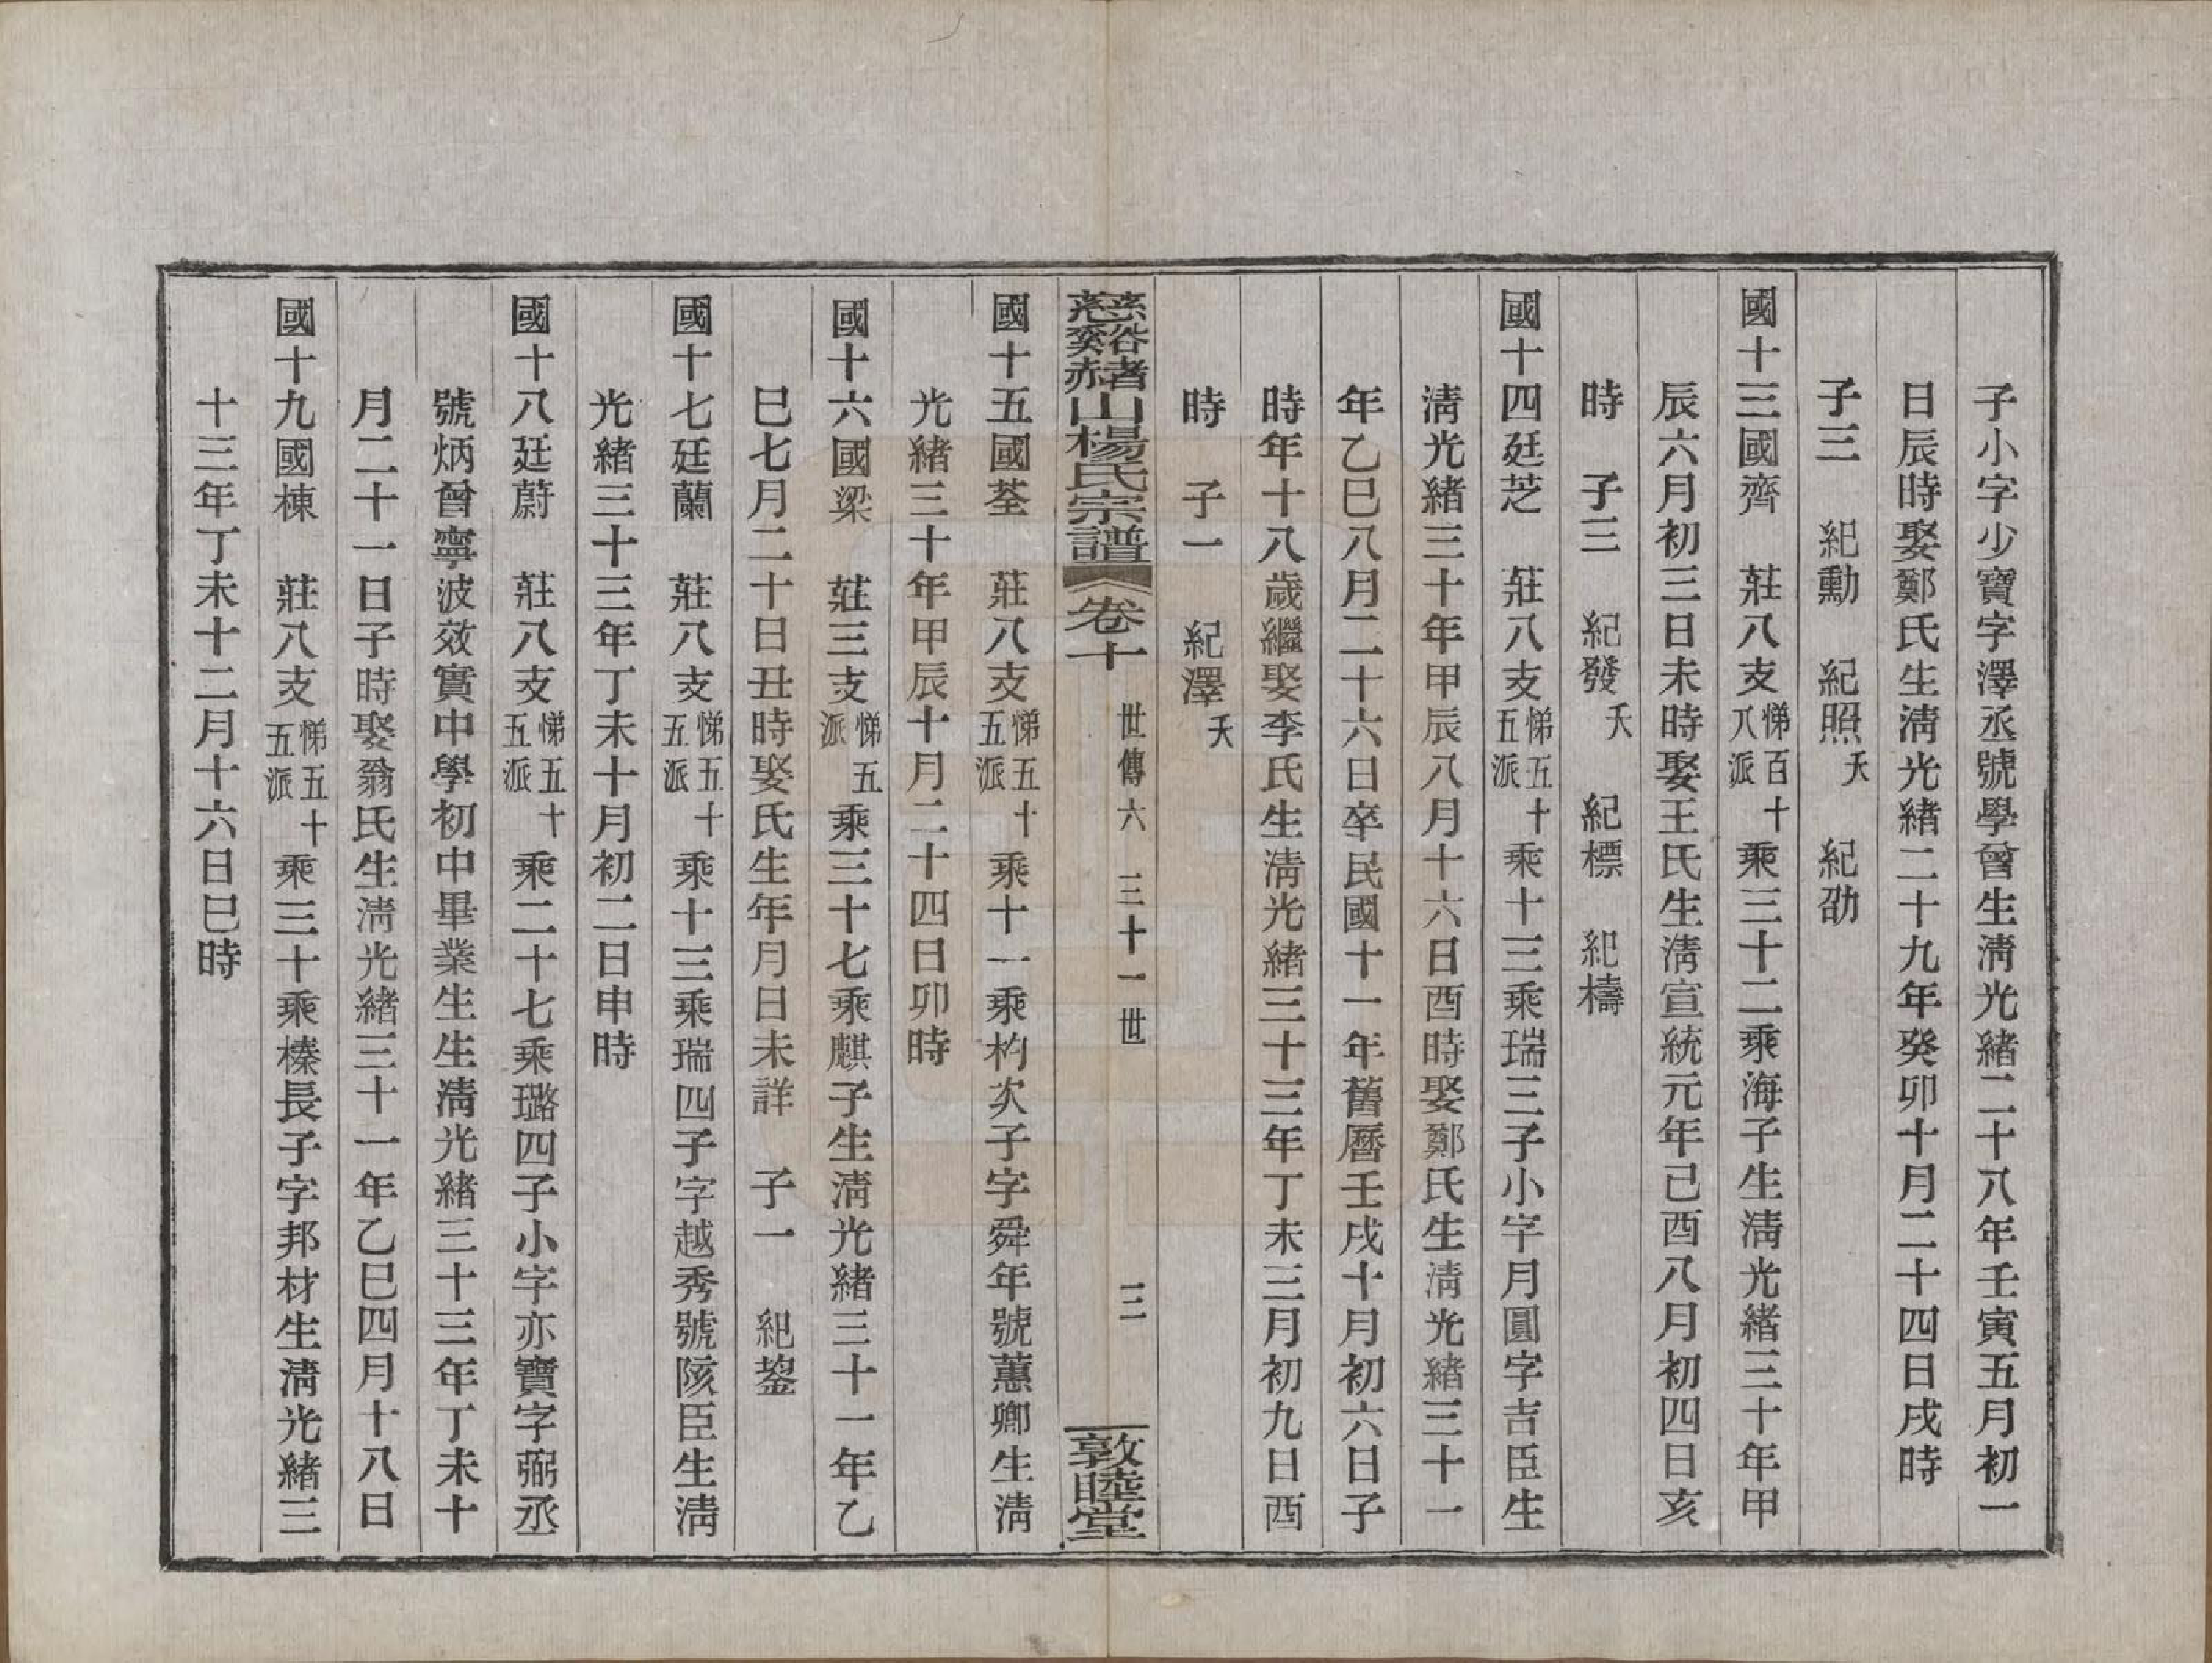 子小字少寶字澤丞號學曾生淸光緒二十八年壬寅五月初一
日辰時娶鄭氏生淸光緒二十九年癸卯十月二十四日戌時
子三　紀勳　紀照夭　紀劭
國十三國齊　莊八支悌百十八派乘三十二乘海子生淸光緒三十年甲
辰六月初三日未時娶王氏生淸宣統元年己酉八月初四日亥
時　子三　紀發夭　紀標　紀檮
國十四廷芝　莊八支悌五十五派乘十三乘瑞三子小字月圓字吉臣生
淸光緒三十年甲辰八月十六日酉時娶鄭氏生淸光緒三十一
年乙巳八月二十六日卒民國十一年舊曆壬戌十月初六日子
時年十八歲繼娶李氏生淸光緒三十三年丁未三月初九日酉
時　子一　紀澤夭
慈谿赭山楊氏宗譜　卷十　世傳六　三十一世　三　敦睦堂
國十五國荃　莊八支悌五十五派乘十一乘杓次子字舜年號蕙卿生淸
光緒三十年甲辰十月二十四日卯時
國十六國梁　莊三支悌五派乘三十七乘麒子生淸光緒三十一年乙
巳七月二十日丑時娶氏生年月日未詳　子一　紀鋆
國十七廷蘭　莊八支悌五十五派乘十三乘瑞四子字越秀號陔臣生淸
光緒三十三年丁未十月初二日申時
國十八廷蔚　莊八支悌五十五派乘二十七乘璐四子小字亦寶字弼丞
號炳曾寧波效實中學初中畢業生生淸光緒三十三年丁未十
月二十一日子時娶翁氏生淸光緒三十一年乙巳四月十八日
國十九國棟　莊八支悌五十五派乘三十乘榛長子字邦材生淸光緒三
十三年丁未十二月十六日巳時